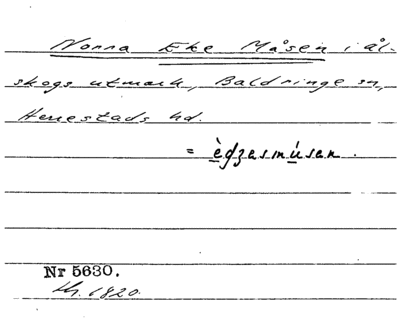 Norra Eke Måsen i ål-
skogs utmark, Baldringe sn,
Herrestads hd.
= ègzasmúsen.
Nr 5630.
1820.